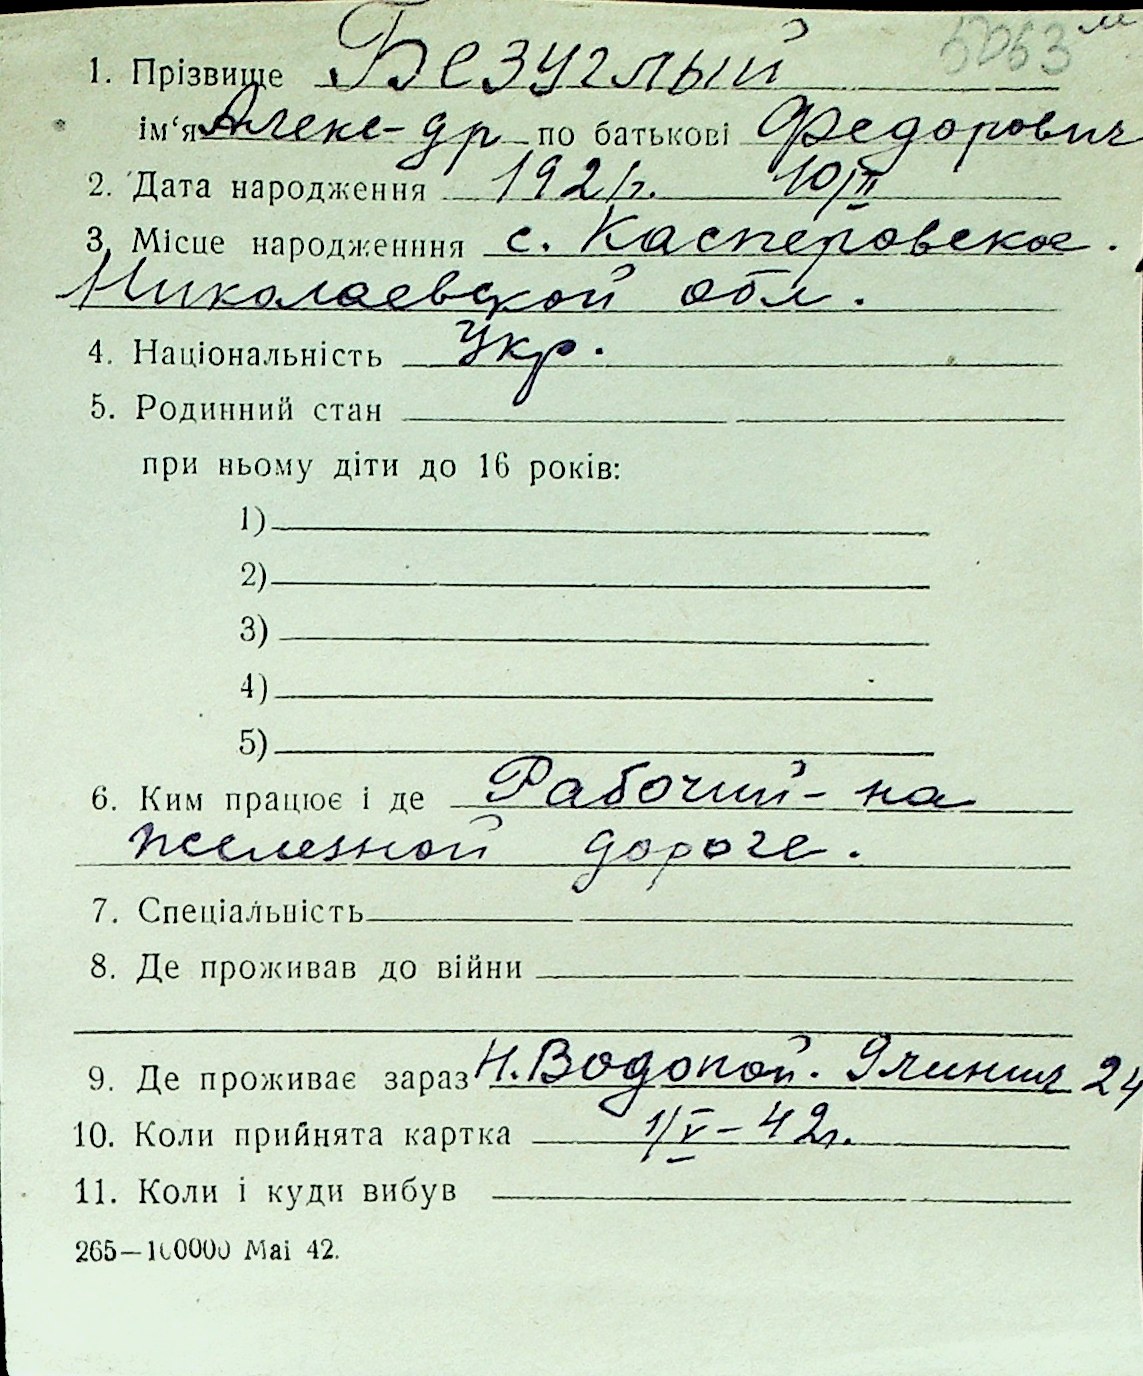 5053 м
1. Прізвище Безуглый
ім‘я Алекс-др по батькові Федорович
2. Дата народження 1921г. 10/II
3. Місце народженння с. Касперовское.
Николаевской обл.
4. Національність Укр.
5. Родинний стан
при ньому діти до 16 років:
1)
2)
3)
4)
5)
6. Ким працює і де Рабочий - на
железной дороге.
7. Спеціальність
8. Де проживав до війни
9. Де проживає зараз Н. Водопой. 24
10. Коли прийнята картка 1/V – 42г.
11. Коли і куди вибув
265—100000 Mai 42.